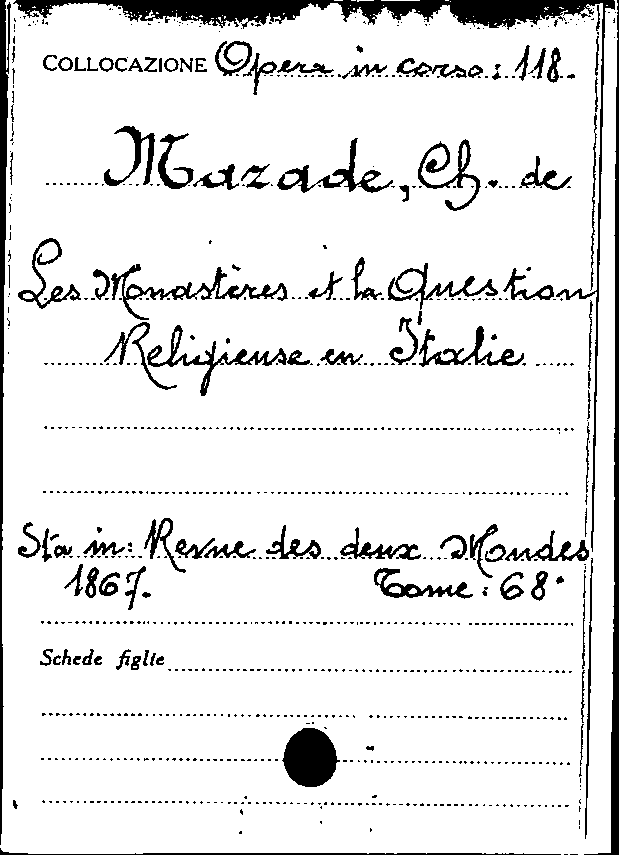 COLLOCAZIONE Opera in corso: 118.
Mazade, Ch. de
Les Monastères et la Question
Religieuse en Italie
Sta in: Revue des deux Mondes
1867. Tome: 68°
Schede figlie